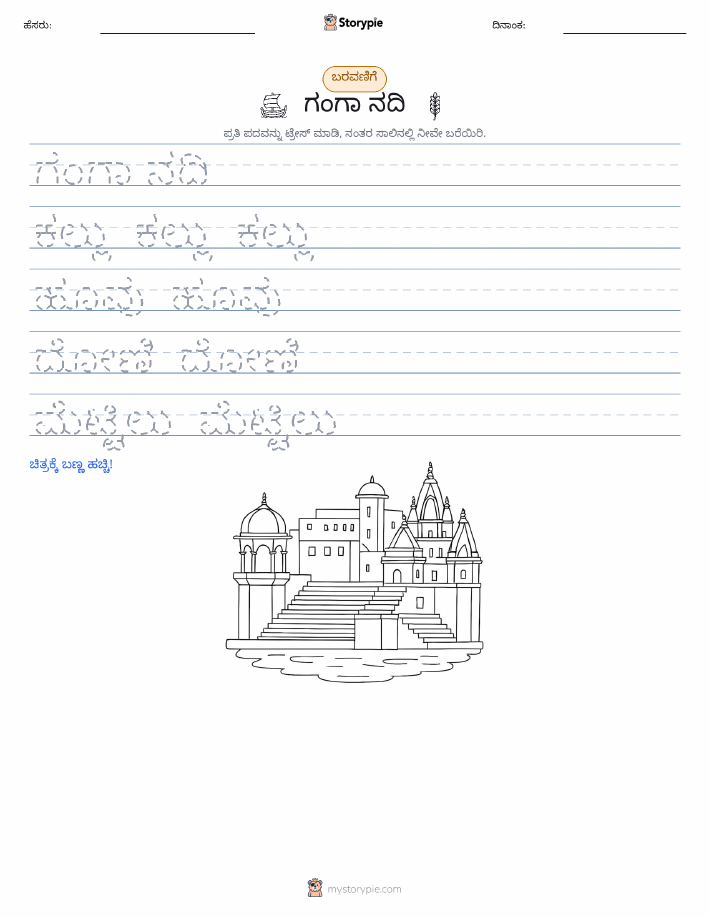 ಹೆಸರು:
Storypie
ದಿನಾಂಕ:
ಬರವಣಿಗೆ
ಗಂಗಾ ನದಿ
ಪ್ರತಿ ಪದವನ್ನು ಟ್ರೇಸ್ ಮಾಡಿ, ನಂತರ ಸಾಲಿನಲ್ಲಿ ನೀವೇ ಬರೆಯಿರಿ.
ಗಂಗಾ ನದಿ
ಕಲ್ಲು ಕಲ್ಲು ಕಲ್ಲು
ಹೂವು ಹೂವು
ದೋಣಿ ದೋಣಿ
ಮೆಟ್ಟಿಲು ಮೆಟ್ಟಿಲು
ಚಿತ್ರಕ್ಕೆ ಬಣ್ಣ ಹಚ್ಚಿ!
mystorypie.com